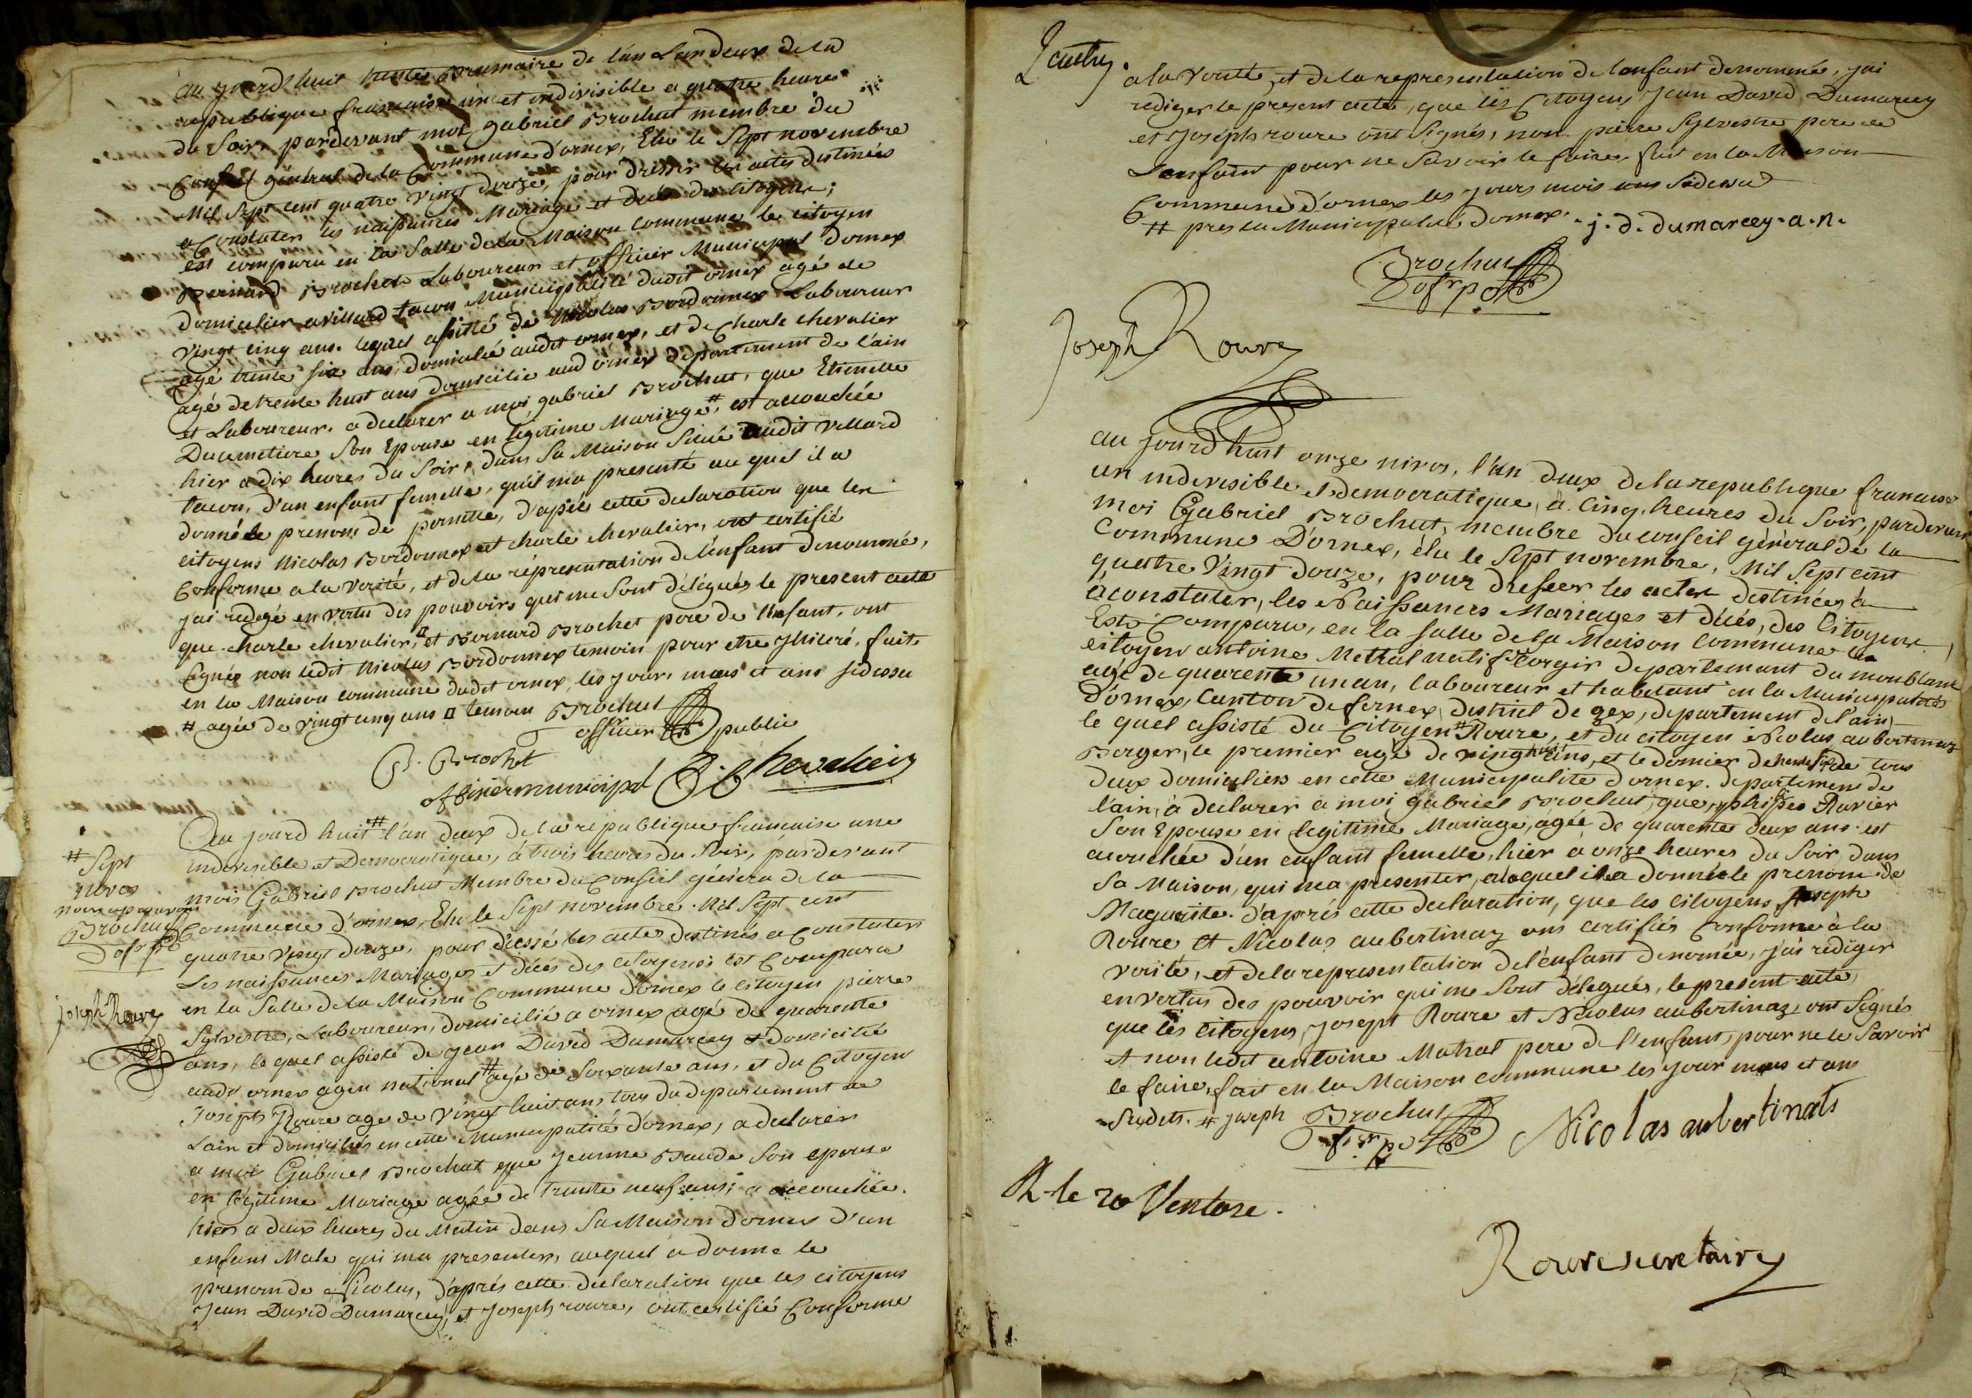 au jourd'huit trente Brumaire de l'an Landeux de la
republique francaise une et indivisible a quatre heures
du Soir, pardevant moi gabriel Brochut membre du
Conseil général de la Commune d'ornex, Elu le Sept novembre
Mil Sept cent quatre vingt douze, pour dresser les actes destinés
a Constater les naissances Mariage et décès des Citoyens;
est comparu en la Salle de la Maison Commune le citoyen
Bernard Brochet Laboureur et officier Municipal Dornex
domicilier a villard tacon Municipalité dudit ornex agé de
vingt cinq ans. lequel assisté de Nicolas Bordonnex Laboureur
agé trente six ans, domicilié audit ornex, et de Charle chevalier
agé de trente huit ans domicilie aud ornex departement de l'ain
et Laboureur. a declarer a moi gabriel Brochut, que Etiennette
Ducimetiere Son Epouse en légitime Mariage # est accouchée
hier a dix heures du Soir, dans Sa Maison Situé audit Villard
tacon, d'un enfant femelle, quil ma presenté au quel il a
donné le prenom de pernette, d'apies cette declaration que les
citoyens Nicolas Bordonnex et charle chevalier, ont certifié
Conforme a la verité, et de la répresentation de l'enfant denommé,
jai redigé en vertu des pouvoirs qui me Sont délégués le present acte
que charle chevalier, ¤ et Bernard Brochet pere de l'enfant. ont
Signés non ledit Nicolas Bordonnex temoin pour etre illiteré, faits
en la Maison commune dudit ornex, les jour, mois et ans sidessu
# agée de vingt cinq ans ¤ temoin Brochut
officier public
B. Brochet
officier municipal C. Chevalier
Au jourd huit # l'an deux de la republique francaise une
indevisible et Democratique, à trois heures du Soir, pardevant
# Sept
nivos
nous approuvons
Brochut
ofr pc
Joseph Roure
moi Gabriel Brochut Membre du Conseil généra de la
Commune d'ornex, Elu le Sept novembre. Mil Sept cent
quatre Vingt douze, pour dressé les actes destinés a Constater
Les naissances Mariages et décès des citoyens. est Comparu
en la Salle de la Maison Commune d'ornex le citoyen pierre
Sylvestre, Laboureur, domicilié a ornex agé de quarente
ans, le quel assisté de jean David Dumarcey domicilié
audit ornex agen national # agé de Soixante ans, et du Citoyen
Joseph Roure age de Vingt huit ans, tous du departement de
Lain et domiciliés en cette Municipalité d'ornex, a declarer
a moi Gabriel Brochut que jeanne Baude Son epouse
en légitime Mariage agée de trente neuf ans, a accouchée.
hier a deux heures du Matin dans Sa Maison d'ornex d'un
enfans Male qui ma presenter, auquel a donne le
prenom de Nicolas, d'aprés cette declaration que les citoyens
Jean David Dumarcey, et Joseph roure, ont certifié Conforme
a la verité, et de la representation de lenfant denommé, jai
rediger le present acte, que les Citoyens Jean David Dumarcey
et Joseph roure ont Signés, non pierre Sylvestre pere de
Lenfant pour ne Savoir le faire. fait en la Maison
Commune d'ornex les jours mois ans Sidessu
# pres la Municipalité Dornex. j. d. dumarcey. a. n.
Brochut
ofr pc
Joseph Roure
au jourd huit onze nivos, l'an deux de la republique francaise
un indevisible et democratique, à Cinq heures du Soir, pardevant
moi Gabriel Brochut, membre du conseil général de la
Commune D'ornex, élu le Sept novembre, Mil Sept cent
quatre Vingt douze, pour dresser les actes destinées à
aconstater, les Naissances Mariages et décés, des Citoyens,
Est Comparu, en la salle de la Maison Commune le
citoyen antoine Metral natif d'orgir departement du monblanc
agé de quarente un an, laboureur et habitant en la Municipalité
D'ornex, Canton de fernex, district de gex, departement de l'ain,
le quel assisté du Citoyen # Roure, et du citoyen Nicolas aubertinaz
Berger, le premier agé de vingt huit ans, et le dernier de trente six de tous
deux domicilies en cette Municipalité d'ornex. departement de
l'ain, à declarer à moi gabriel Brochut que, philippes Ravier
Son Epouse en legitime Mariage, agée de quarente deux ans. est
acouchée d'un enfant femelle, hier a onze heures du Soir dans
Sa Maison, qui ma presenter, auquel il a donné le prenom de
Maguerite. d'aprés cette declaration, que les citoyens Joseph
Roure et Nicolas aubertinaz ons certifiés Conforme à la
verité, et de la representation de l'enfant denomée, j'ai rediger
en vertus des pouvoir qui me Sont délegués, le present acte,
que les citoyens, Joseph Roure et Nicolas aubertinaz ont Signés
et non ledit antoine Matral pere de l'enfant, pour ne le Savoir
le faire, fait en la Maison commune les jour mois et ans
Sudets. # joseph Brochut
ofr pc
Nicolas aubertinats
R. le 20 Ventose.
Roure secretaire